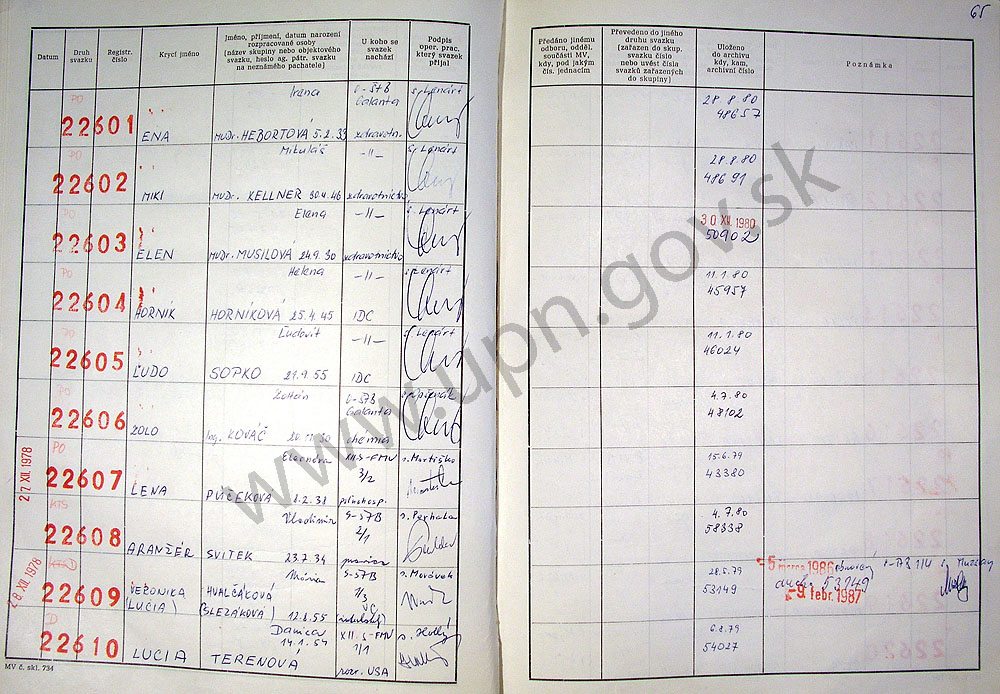 65
Datum
Druh svazku
Registr. číslo
Krycí jméno
Jméno, příjmení, datum narození
rozpracované osoby
(název skupiny nebo objektového
svazku, heslo ag. pátr. svazku
na neznámého pachatele)
U koho se
svazek
nachází
Podpis
oper. prac.
který svazek
přijal
Předáno jinému
odboru, odděl.
součásti MV,
kdy, pod jakým
čís. jednacím
Převedeno do jiného
druhu svazku
(zařazen do skup.
svazku číslo
nebo uvést čísla
svazků zařazených
do skupiny)
Uloženo
do archivu
kdy, kam,
archivní číslo
Poznámka
PO Irena Galanta s. Lenárt 28 8 80
22601 ENA MUDr. HEBORTOVÁ 5.2.33 zdravotn. 48657
PO Mikuláš -"- s. Lenárt 28.8.80
22602 MIKI MUDr. KELLNER 30.4.46 zdravotníctvo 48691
PO Elena -"- s. Lenárt 30 XII. 1980
22603 ELEN MUDr. MUSILOVÁ 24.9.30 zdravotníctvo 50902
PO Helena -"- s. Lenárt 11.1.80
22604 HORNIK HORNÍKOVÁ 25.4.45 IDC 45957
PO Ľudovít -"- s. Lenárt 11.1.80
22605 ĽUDO SOPKO 21.9.55 IDC 46024
PO Galanta 4.7.80
22606 ZOLO Ing. KOVÁČ chémia 48102
27 XII. 1978
PO Eleonóra XII.S-FMV s. Martiško 15.6.79
22607 LENA 3/2 8.2.38 43380
KTS Vladimír S-ŠTB 4.7.80
22608 ARANŽÉR SVITEK 23.7.34 2/1 58338
28 XII. 1978
Mária S-ŠTB s. Morávek 28.5.79 -5 marca 1986
22609 VERONIKA HVALČÁKOVÁ 7/3 53149 53149
(LUCIA) (SLEZÁKOVÁ) 12.8.55 -9 febr. 1987
D Danica XII.S-FMV s. Hollý 6.2.79
22610 LUCIA TERENOVA 14.1.54 1/1 54027
rozv. USA
MV č. skl. 734
www.upn.gov.sk